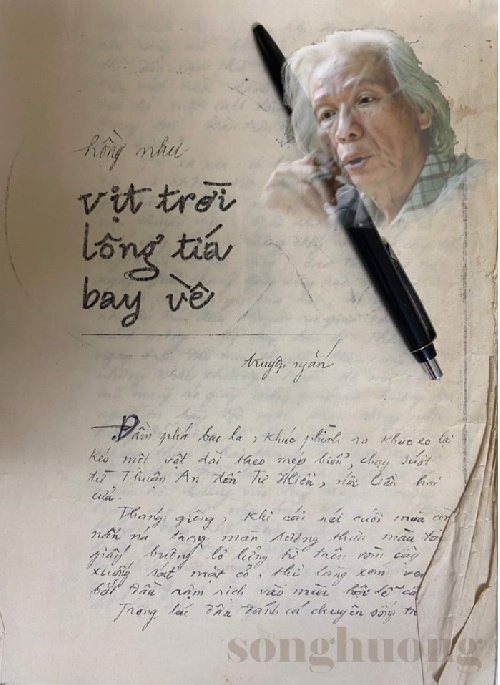 hồng nhu
vịt trời
lông tiá
bay về
truyện ngắn
Đầm phá bao la, khúc phình ra khúc eo lại
kéo một vệt dài theo mép biển, chạy suốt
từ Thuận An đến Tư Hiền, nối liền hai
cửa.
Tháng giêng, khi cái rét cuối mùa còn
nấn ná trong màn sương
giấy buông lơ lửng từ trên vòm cây
xuống mặt cỏ, thì làng xóm
bắt đầu rậm rịch vào mùi
Trong lúc dân đánh cá chuyên sống
songhuong